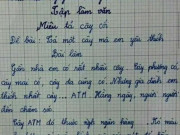 Tập làm văn
Miêu tả cây cối
Đề bài: Tả một cây mà em yêu thích
Bài làm
Gần nhà em có rất nhiều cây. Cây phượng có,
cây mai có, cây đa cũng có. Nhưng gia đình em
thích nhất cây ATM. Hằng ngày, người người
đến chăm sóc
Cây ATM đó thuộc ngân hàng